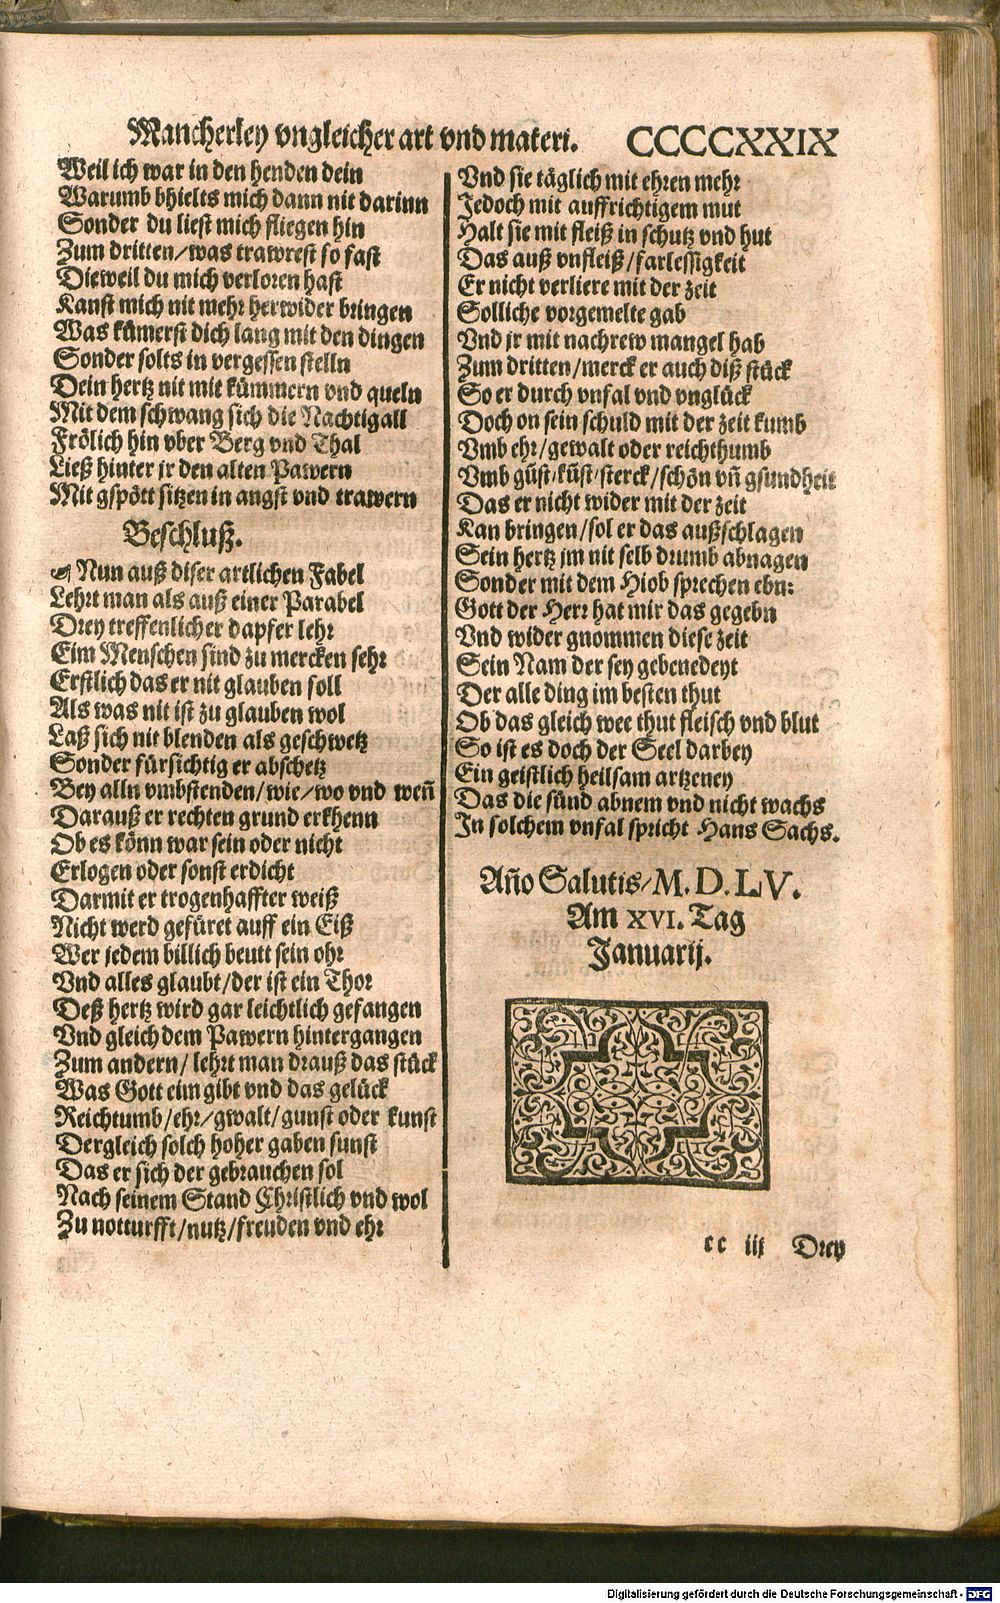 Mancherley vngleicher art vnd materi. CCCCXXIX
Weil ich war in den henden dein
Warumb bhielts mich dann nit darinn
Sonder du liest mich fliegen hin
Zum dritten/was trawrest so fast
Dieweil du mich verloren hast
Kanst mich nit mehr herwider bringen
Was kümerst dich lang mit den dingen
Sonder solts in vergessen stelln
Dein hertz nit mit kümmern vnd queln
Mit dem schwang sich die Nachtigall
Frölich hin vber Berg vnd Thal
Ließ hinter jr den alten Pawern
Mit gspött sitzen in angst vnd trawern
Beschluß.
☙ Nun auß diser artlichen Fabel
Lehrt man als auß einer Parabel
Drey treffenlicher dapfer lehr
Eim Menschen sind zu mercken sehr
Erstlich das er nit glauben soll
Als was nit ist zu glauben wol
Laß sich nit blenden als geschwetz
Sonder fürsichtig er abschetz
Bey alln vmbstenden/wie/wo vnd weñ
Darauß er rechten grund erkhenn
Ob es könn war sein oder nicht
Erlogen oder sonst erdicht
Darmit er trogenhaffter weiß
Nicht werd gefüret auff ein Eiß
Wer jedem billich beutt sein ohr
Vnd alles glaubt/der ist ein Thor
Deß hertz wird gar leichtlich gefangen
Vnd gleich dem Pawern hintergangen
Zum andern/ lehrt man drauß das stück
Was Gott eim gibt vnd das gelück
Reichtumb/ehr/gwalt/gunst oder kunst
Dergleich solch hoher gaben sunst
Das er sich der gebrauchen sol
Nach seinem Stand Christlich vnd wol
Zu notturfft/nutz/freuden vnd ehr
Vnd sie täglich mit ehren mehr
Jedoch mit auffrichtigem mut
Halt sie mit fleiß in schutz vnd hut
Das auß vnfleiß/farlessigkeit
Er nicht verliere mit der zeit
Solliche vorgemelte gab
Vnd jr mit nachrew mangel hab
Zum dritten/merck er auch diß stück
So er durch vnfal vnd vnglück
Doch on sein schuld mit der zeit kumb
Vmb ehr/gewalt oder reichthumb
Vmb güst/küst/sterck/schön vñ gsundheit
Das er nicht wider mit der zeit
Kan bringen/sol er das außschlagen
Sein hertz jm nit selb drumb abnagen
Sonder mit dem Hiob sprechen ebn:
Gott der Herr hat mir das gegebn
Vnd wider gnommen diese zeit
Sein Nam der sey gebenedeyt
Der alle ding im besten thut
Ob das gleich wee thut fleisch vnd blut
So ist es doch der Seel darbey
Ein geistlich heilsam artzeney
Das die sünd abnem vnd nicht wachs
In solchem vnfal spricht Hans Sachs.
Año Salutis/M.D.LV.
Am XVI. Tag
Januarij.
cc iij Drey
Digitalisierung gefördert durch die Deutsche Forschungsgemeinschaft - DFG